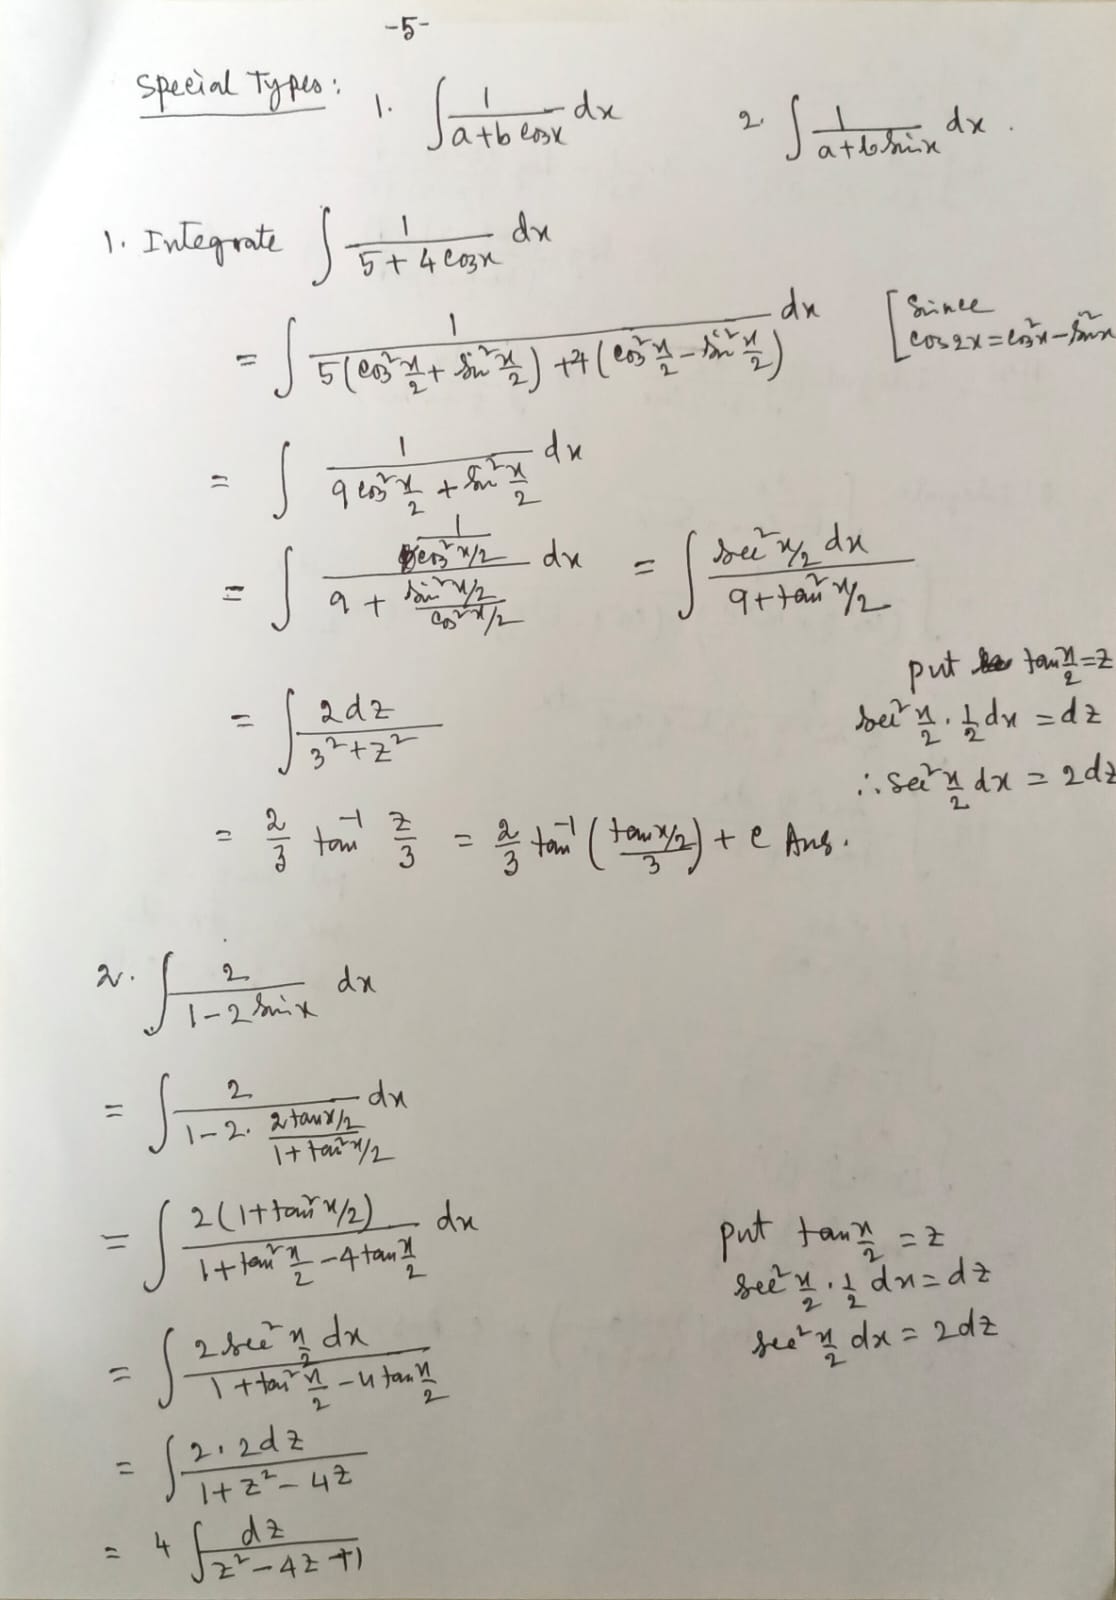 -5-
Special Types: 1. ∫ 1/(a+b cosx) dx 2. ∫ 1/(a+b sinx) dx.
1. Integrate ∫ 1/(5+4cosx) dx
= ∫ 1/(5(cos² x/2 + sin² x/2) + 4(cos² x/2 - sin² x/2)) dx [Since cos2x = cos²x - sin²x
= ∫ 1/(9cos² x/2 + sin² x/2) dx
= ∫ (1/(cos² x/2))/(9 + (sin² x/2)/(cos² x/2)) dx = ∫ (sec² x/2 dx)/(9+tan² x/2)
put tan x/2 = z
= ∫ 2dz/(3²+z²) sec² x/2 · 1/2 dx = dz
∴ sec² x/2 dx = 2dz
= 2/3 tan⁻¹ z/3 = 2/3 tan⁻¹ ((tan x/2)/3) + c Ans.
2. ∫ 2/(1-2sinx) dx
= ∫ 2/(1-2· (2tan x/2)/(1+tan² x/2)) dx
= ∫ (2(1+tan² x/2))/(1+tan² x/2 - 4tan x/2) dx put tan x/2 = z
sec² x/2 · 1/2 dx = dz
= ∫ (2sec² x/2 dx)/(1+tan² x/2 - 4tan x/2) sec² x/2 dx = 2dz
= ∫ (2·2dz)/(1+z²-4z)
= 4 ∫ dz/(z²-4z+1)